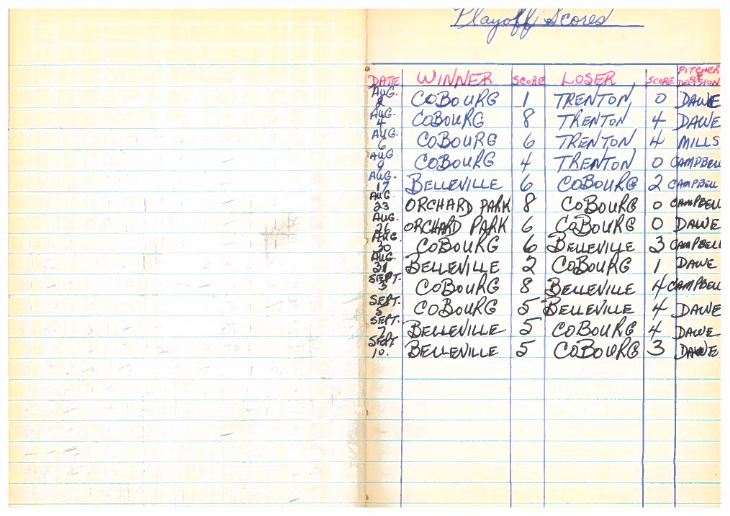 Playoff Scores
DATE WINNER SCORE LOSER SCORE PITCHER & DECISION
AUG. 2 COBOURG 1 TRENTON 0 DAWE
AUG. 4 COBOURG 8 TRENTON 4 DAWE
AUG. 6 COBOURG 6 TRENTON 4 MILLS
AUG 9 COBOURG 4 TRENTON 0 CAMPBELL
AUG. 17 BELLEVILLE 6 COBOURG 2 CAMPBELL
AUG. 23 ORCHARD PARK 8 COBOURG 0 CAMPBELL
AUG. 26 ORCHARD PARK 6 COBOURG 0 DAWE
AUG. 30 COBOURG 6 BELLEVILLE 3 CAMPBELL
AUG. 31 BELLEVILLE 2 COBOURG 1 DAWE
SEPT. 3 COBOURG 8 BELLEVILLE 4 CAMPBELL
SEPT. 5 COBOURG 5 BELLEVILLE 4 DAWE
SEPT. 7 BELLEVILLE 5 COBOURG 4 DAWE
SEPT. 10. BELLEVILLE 5 COBOURG 3 DAWE